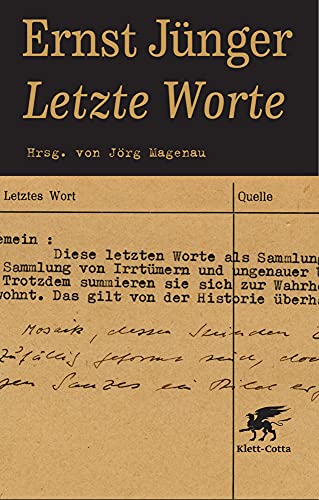 Ernst Jünger
Letzte Worte
Hrsg. von Jörg Magenau
Letztes Wort Quelle
emein :
Diese letzten Worte als Sammlung
Sammlung von Irrtümern und ungenauer
Trotzdem summieren sie sich zur Wahrhe
wohnt. Das gilt von der Historie überha
Mosaik, dessen
zufällig geformt sind, doch
gen Ganzes ein Bild erg
Klett-Cotta